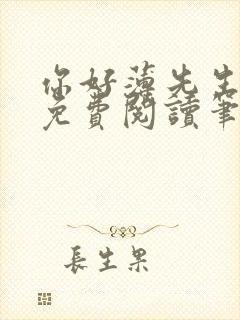 你好薄先生
免費閱讀筆
長生果